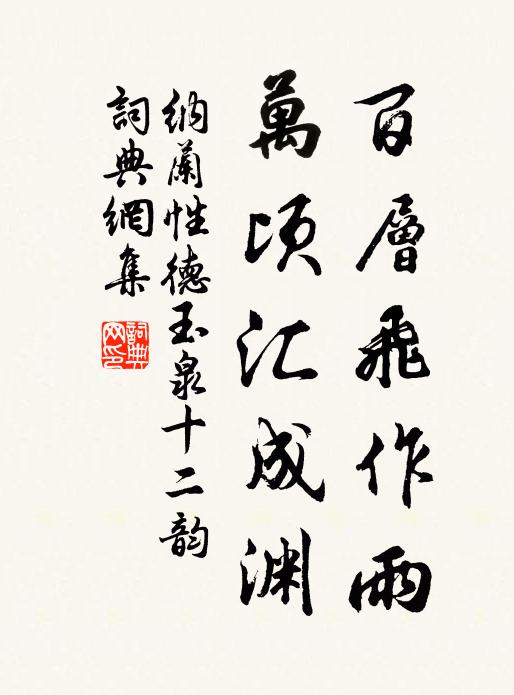 百層飛作雨
萬頃汇成渊
納蘭性德玉泉十二韵
詞典網集
詞典
网印